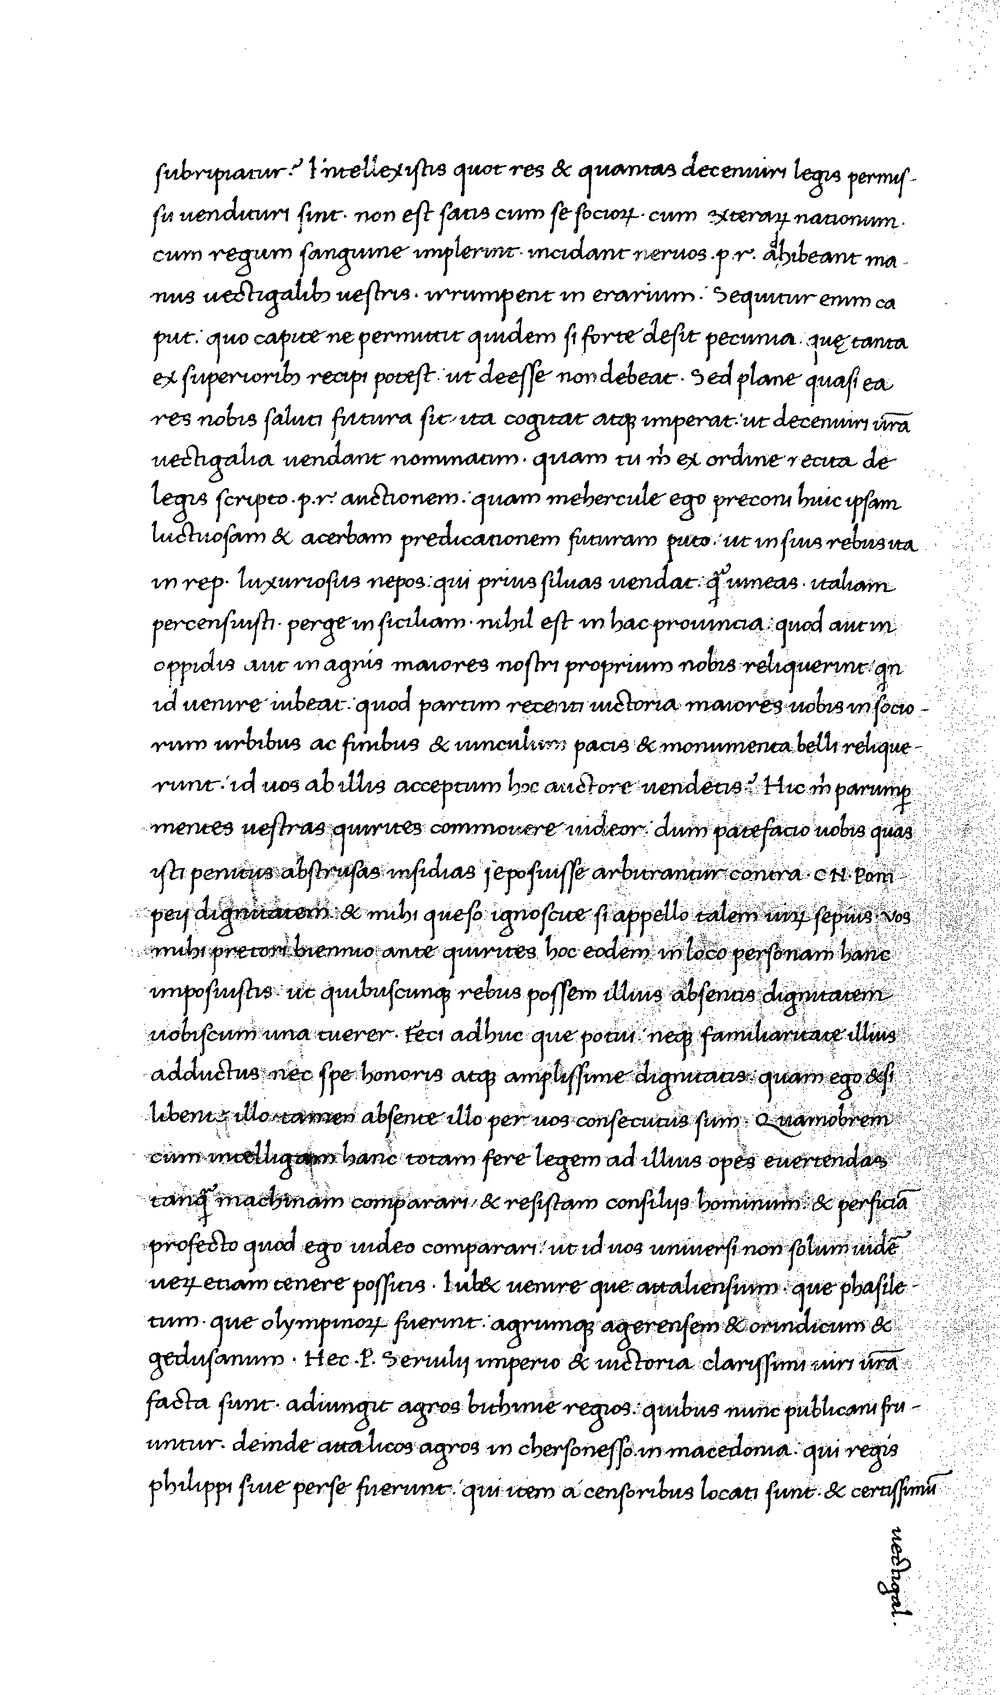 subripiatur? Intellexistis quot res & quantas decemuiri legis permis-
su uendituri sint. non est satis cum se socioꝝ. cum exteraꝝ nationum.
cum regum sanguine implerint. incidant neruos .p.r. adhibeant ma-
nus uectigalibꝫ uestris. irrumpent in erarium. Sequitur enim ca
put: quo capite ne permittit quidem si forte desit pecunia. quę tanta
ex superioribꝫ recipi potest: ut deesse non debeat. Sed plane quasi ea
res nobis saluti futura sit, ita cogitat atqꝫ imperat: ut decemuiri ur̄a
uectigalia uendant nominatim. quam tu m̄ ex ordine recita de
legis scripto .p.r. auctionem: quam mehercule ego preconi huic ipsam
luctuosam & acerbam predicationem futuram puto: ut in suis rebus ita
in rep. luxuriosus nepos: qui prius siluas uendat: qꝫ̄ uineas. italiam
percensuisti. perge in siciliam. nihil est in hac prouincia: quod aut in
oppidis aut in agris maiores nostri proprium nobis reliquerint: qn
id uenire iubeat: quod partim recenti uictoria maiores uobis in socio-
rum urbibus ac finibus & uinculum pacis & monumenta belli relique-
runt: id uos ab illis acceptum hoc auctore uendetis? Hic m̄ parumꝑ
mentes uestras quirites commouere uideor: dum patefacio uobis quas
isti penitus abstrusas insidias se posuisse arbitrantur contra .CN. Pom-
peij dignitatem: & mihi queso ignoscite si appello talem uiꝝ sepius. Vos
mihi pretori biennio ante quirites hoc eodem in loco personam hanc
imposuistis: ut quibuscunqꝫ rebus possem illius absentis dignitatem
uobiscum una tuerer. feci adhuc que potui: neqꝫ familiaritate illius
adductus nec spe honoris atqꝫ amplissime dignitatis: quam ego & si
libente illo tamen absente illo per uos consecutus sum. Quamobrem
cum intelligam hanc totam fere legem ad illius opes euertendas
tanqꝫ̄ machinam comparari, & resistam consilijs hominum: & perficiā
profecto quod ego uideo comparari: ut id uos uniuersi non solum uidē
ueꝝ etiam tenere possitis. Iubet uenire que attaliensium. que phasile-
tum. que olympinoꝝ fuerint: agrumqꝫ agerensem & orindicum &
gedusanum. Hec .P. Seruilij imperio & uictoria clarissimi uiri ur̄a
facta sunt. adiungit agros bithinie regios: quibus nunc publicani fru-
untur. deinde attalicos agros in chersonesso. in macedonia. qui regis
philippi siue perse fuerunt: qui item a censoribus locati sunt. & certissimū
uectigal.